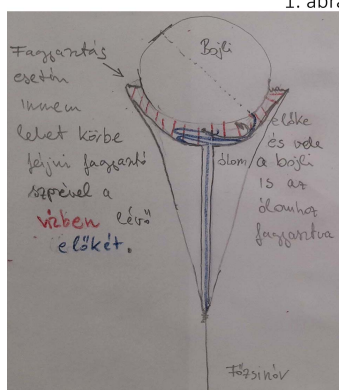 1. ábra
Bojli
Fagyasztás
esetén
innen
lehet körbe
fújni fagyasztó
szprével a
vízben lévő
előkét.
előke
és vele
a bojli
is az
ólomhoz
fagyasztva
ólom
Főzsinór